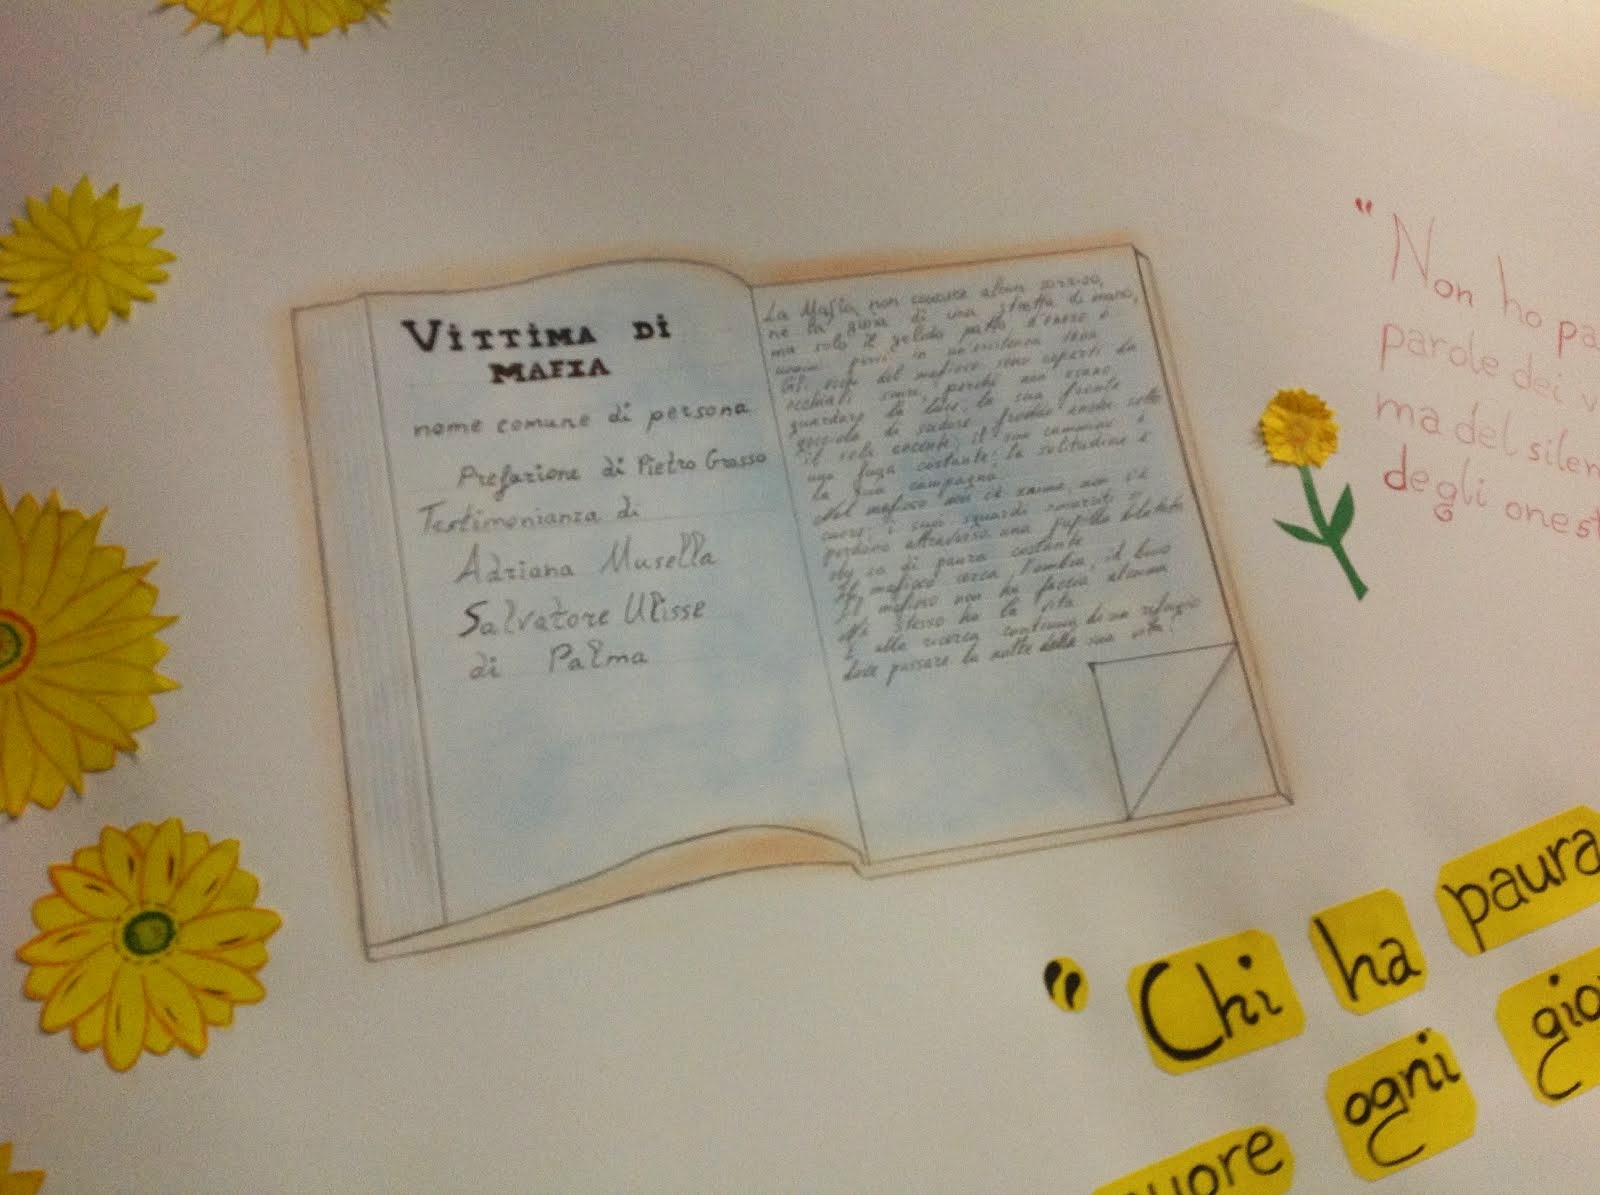 VITTIMA DI
MAFIA
nome comune di persona
Prefazione di Pietro Grasso
Testimonianza di
Adriana Musella
Salvatore Ulisse
di Palma
La Mafia non conosce alcun sorriso,
ne la gioia di una stretta di mano,
ma solo il gelido patto d'onore
uomini in un'esistenza
Gli occhi del mafioso sono coperti da
occhiali scuri, perché non osano
guardare la luce, la sua fronte
gocciola di sudore freddo anche sotto
il sole cocente; il suo cammino è
una fuga costante; la solitudine è
la sua compagna.
Nel mafioso non c'è non c'è
cuore; i suoi sguardi
perdono attraverso una pupilla dilatata
di paura costante
Il mafioso cerca l'ombra, il buio
Il mafioso non ha faccia alcuna
stesso ha la vita
È alla ricerca continua di un rifugio
dove passare la notte della sua vita!
"Non ho pa
parole dei v
ma del silen
degli onest
"Chi ha paura
ogni gio
uore